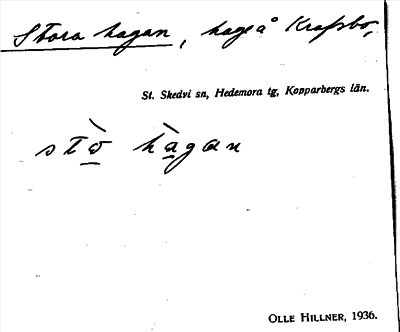 Stora hagan, hage å Krafsbo,
St. Skedvi sn, Hedemora tg, Kopparbergs län.
stò̠ hà̠gan
OLLE HILLNER, 1936.